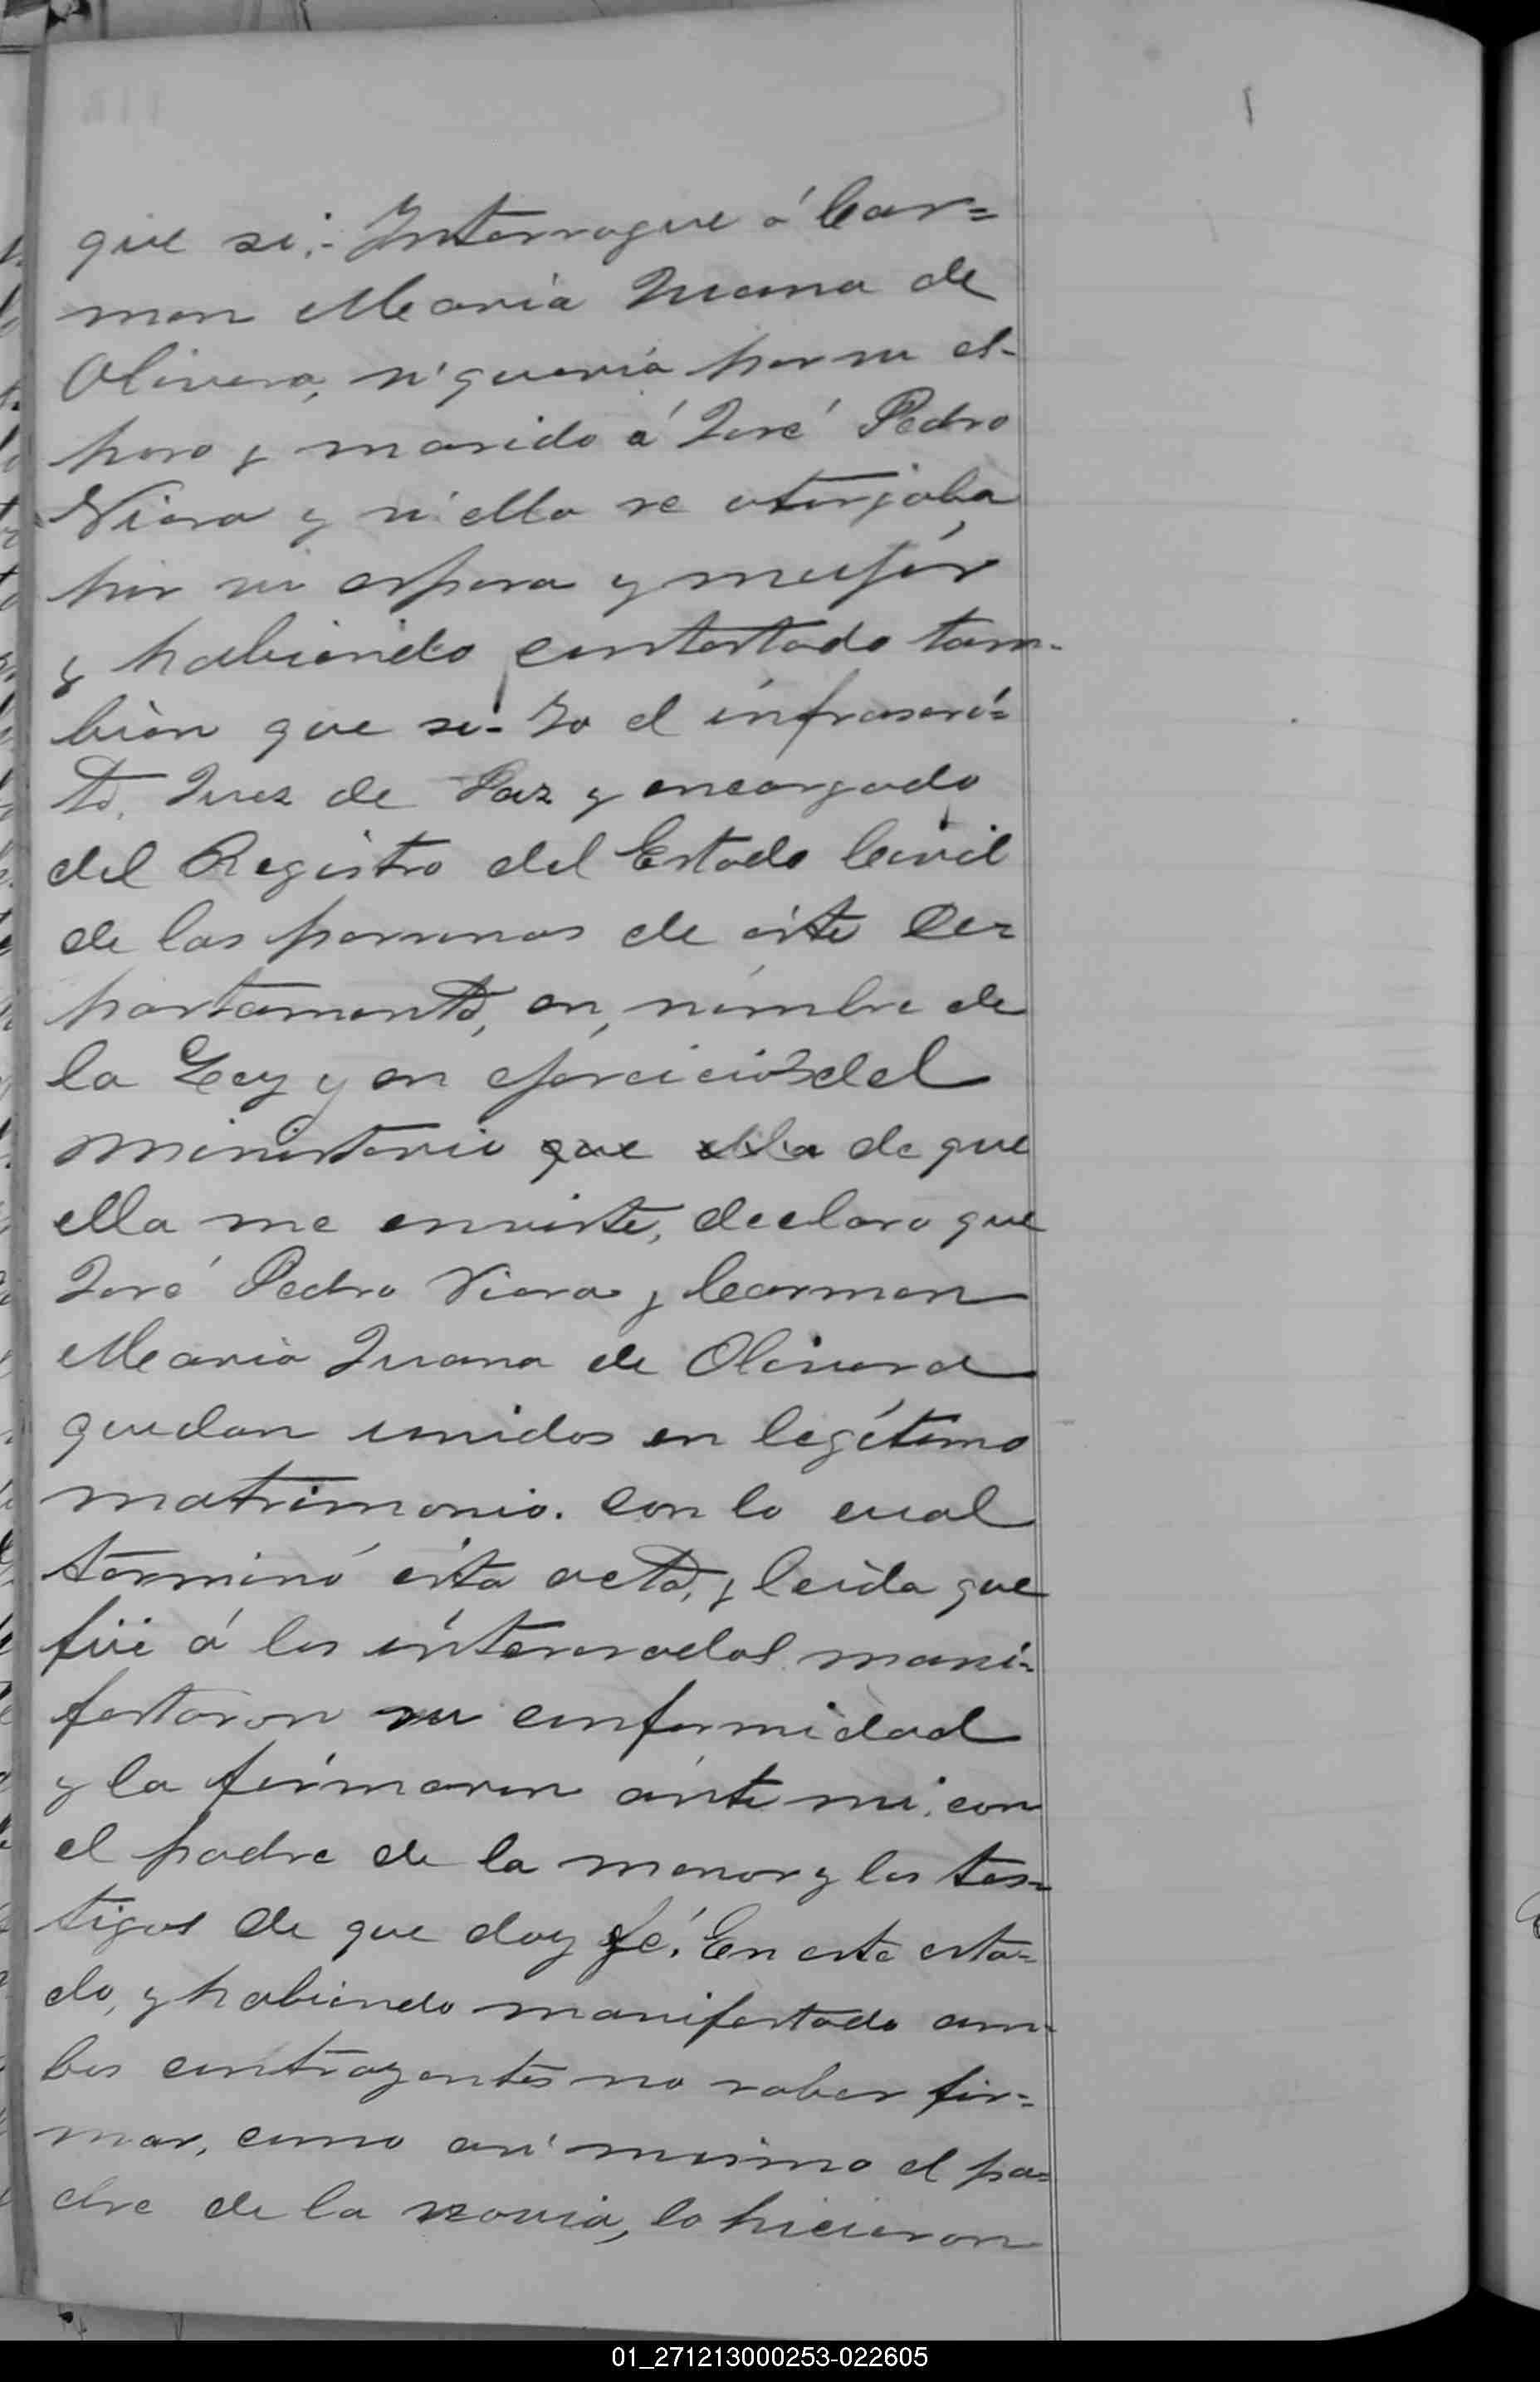 que si.- Interrogue á Car=
men Maria Juana de
Olivera, si queria por su es-
poso y marido á José Pedro
Viera y si ella se otorgaba
por su esposa y mujér
y habiendo contestado tam-
bién que si- Yo el infrascri=
to, Juez de Paz y encargado
del Registro del Estado Civil
de las personas de éste De=
partamento, en nómbre de
la Ley y en ejercicio del
ministerio que ella de que
ella me enviste, declaro que
José Pedro Viera y Carmen
Maria Juana de Olivera
quedan unidos en legítimo
matrimonio. Con lo cual
terminó ésta acta, y leida que
fué á los interesados mani=
festaron su conformidad
y la firmaron ánte mi, con
el padre de la menor y los tes=
tigos de que doy fé. En este esta=
do, y habiendo manifestado am-
bos contrayentes no saber fir=
mar, como asi mismo el pa=
dre de la novia, lo hicieron
01_271213000253-022605